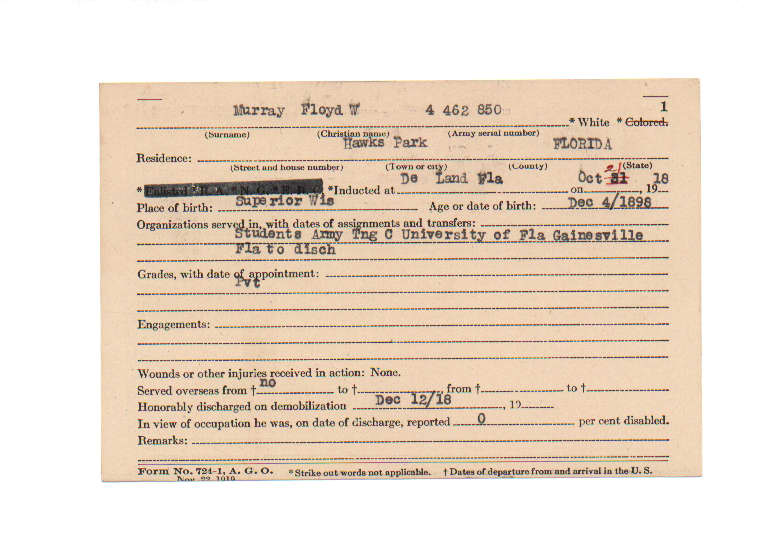 Murray Floyd W 4 462 850 1
* White * Colored.
(Surname) (Christian name) (Army serial number)
Hawks Park FLORIDA
Residence:
(Street and house number) (Town or city) (County) (State)
De Land Fla Oct 31 18
* Enlisted * R. A. * N. G. * E. R. C. *Inducted at on , 19
Place of birth: Superior Wis Age or date of birth: Dec 4/1898
Organizations served in, with dates of assignments and transfers:
Students Army Tng C University of Fla Gainesville
Fla to disch
Grades, with date of appointment:
Pvt
Engagements:
Wounds or other injuries received in action: None.
Served overseas from † no to † , from † to †
Honorably discharged on demobilization Dec 12/18 , 19
In view of occupation he was, on date of discharge, reported 0 per cent disabled.
Remarks:
Form No. 724-1, A. G. O. *Strike out words not applicable. † Dates of departure from and arrival in the U. S.
Nov. 22, 1919